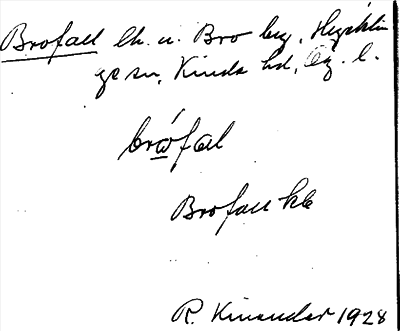 Brofall lh. u. Bro by, Hycklin
ge sn, Kinda hd, Ög. l.
brófal
Brofall kb
R. Kinander 1928